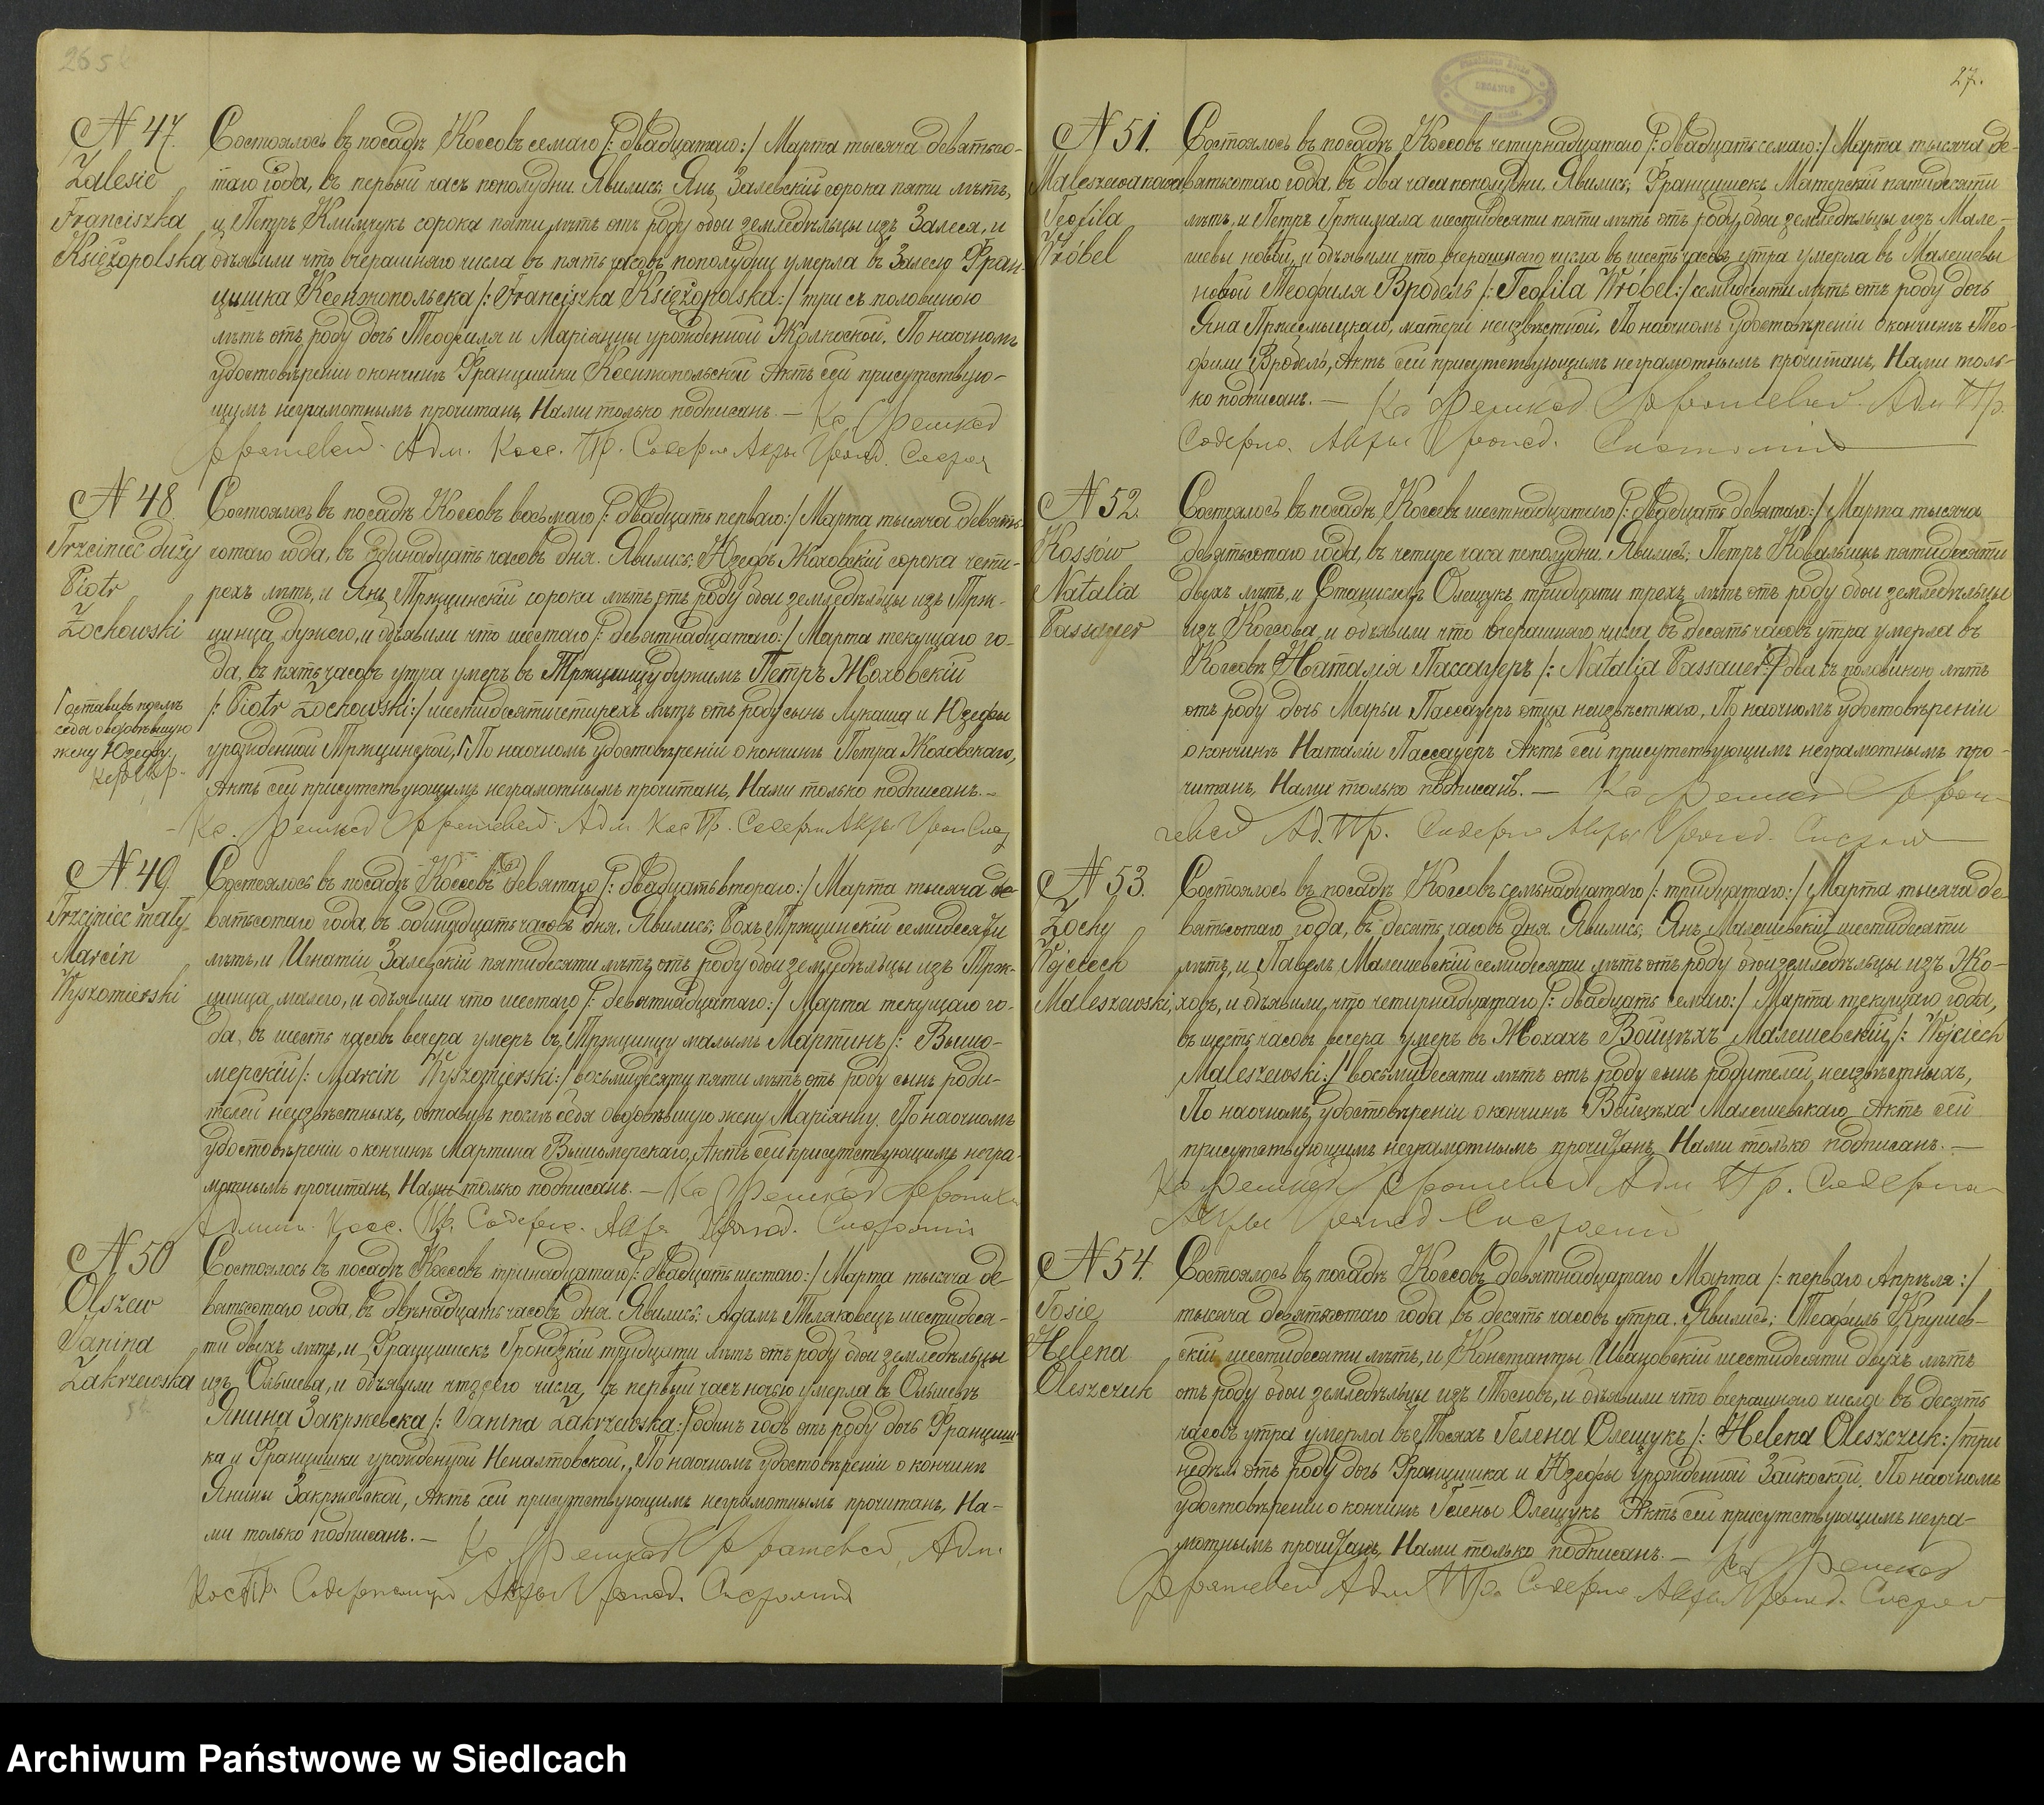 27.
N 47.
Zalesie
Franciszka
Księżopolska
Состоялось въ посадѣ Коссовъ семаго /: двадцатаго :/ Марта тысяча девятьсо-
таго года, въ первый часъ пополудни. Явились: Янъ Залевскій сорока пяти лѣтъ,
и Петръ Климчукъ сорока пяти лѣтъ отъ роду обои земледѣльцы изъ Залеся, и
объявили что вчерашняго числа въ пять часовъ пополудни умерла въ Залесю Фран-
цишка Ксенжопольска /: Franciszka Księżopolska :/ три съ половиною
лѣтъ отъ роду дочь Теофиля и Маріанны урожденной . По наочномъ
удостовѣреніи о кончинѣ Францишки Ксенжопольской Актъ сей присутствую-
щимъ неграмотнымъ прочитанъ, Нами только подписанъ. —
N 48.
Trzciniec duży
Piotr
Żochowski
Состоялось въ посадѣ Коссовъ восьмаго /: двадцать перваго :/ Марта тысяча девять-
сотаго года, въ одинадцать часовъ дня. Явились: Юзефъ Жоховскій сорока чети-
рехъ лѣтъ, и Янъ Тржцинскій сорока лѣтъ отъ роду обои земледѣльцы изъ Трж-
цинца дужего, и объявили что шестаго /: девятнадцатаго :/ Марта текущаго го-
да, въ пять часовъ утра умеръ въ Тржцинцу дужимъ Петръ Жоховскій
/: Piotr Żochowski :/ шестидесяти четирехъ лѣтъ отъ роду сынъ Лукаша и Юзефы
урожденной Тржцинской, Г По наочномъ удостовѣреніи о кончинѣ Петра Жоховскаго,
Актъ сей присутствующимъ неграмотнымъ прочитанъ, Нами только подписанъ. —
Г оставивъ послѣ
себя овдовѣвшую
жену Юзефу,
N 49.
Trzciniec mały
Marcin
Wyszomierski
Состоялось въ посадѣ Коссовъ девятаго /: двадцать втораго :/ Марта тысяча де-
вятьсотаго года, въ одинадцать часовъ дня. Явились: Рохъ Тржцинскій семидесяти
лѣтъ, и Игнатій Залевскій пятидесяти лѣтъ отъ роду обои земледѣльцы изъ Трж-
цинца малего, и объявили что шестаго /: девятнадцатаго :/ Марта текущаго го-
да, въ шесть часовъ вечера умеръ въ Тржцинцу малымъ Мартинъ /: Вышо-
мерскій /: Marcin Wyszomierski :/ восьмидесяти пяти лѣтъ отъ роду сынъ роди-
телей неизвѣстныхъ, оставивъ послѣ себя овдовѣвшую жену Маріанну. По наочномъ
удостовѣреніи о кончинѣ Мартина Вышомерскаго, Актъ сей присутствующимъ негра-
мотнымъ прочитанъ, Нами только подписанъ. —
N 50
Olszew
Janina
Zakrzewska
Состоялось въ посадѣ Коссовъ тринадцатаго /: двадцать шестаго :/ Марта тысяча де-
вятьсотаго года, въ двѣнадцать часовъ дня. Явились: Адамъ Тляковецъ шестидеся-
ти двухъ лѣтъ, и Францишекъ Гронецкій тридцати лѣтъ отъ роду обои земледѣльцы
изъ Ольшева, и объявили что сего числа, въ первый часъ ночью умерла въ Ольшевѣ
Янина Закржевска /: Janina Zakrzewska :/ одинъ годъ отъ роду дочь Францищ-
ка и Францишки урожденной . По наочномъ удостовѣреніи о кончинѣ
Янины Закржевской, Актъ сей присутствующимъ неграмотнымъ прочитанъ, На-
ми только подписанъ. —
N 51.
Maleszewa nowa
Teofila
Wróbel
Состоялось въ посадѣ Коссовъ четирнадцатаго /: двадцать семаго :/ Марта тысяча де-
вятьсотаго года, въ два часа пополудни. Явились: Францишекъ Матерскій пятидесяти
лѣтъ, и Петръ Гржимала шестидесяти пяти лѣтъ отъ роду, обои земледѣльцы изъ Мале-
шевы новой, и объявили что вчерашняго числа въ шесть часовъ утра умерла въ Малешевы
новой Теофиля Вробель /: Teofila Wróbel :/ семидесяти лѣтъ отъ роду дочь
Яна Пржемыцкаго, матери неизвѣстной. По наочномъ удостовѣреніи о кончинѣ Тео-
фили Вробель, Актъ сей присутствующимъ неграмотнымъ прочитанъ, Нами толь-
ко подписанъ. —
N 52.
Kossów
Natalia
Passauer
Состоялось въ посадѣ Коссовъ шестнадцатаго /: двадцать девятаго :/ Марта тысяча
девятьсотаго года, въ четире часа пополудни. Явились: Петръ Ковальчикъ пятидесяти
двухъ лѣтъ, и Станиславъ Олещукъ тридцати трехъ лѣтъ отъ роду обои земледѣльцы
изъ Коссова, и объявили что вчерашняго числа, въ десять часовъ утра умерла въ
Коссовѣ Наталія Пассауеръ /: Natalia Passauer :/ два съ половиною лѣтъ
отъ роду дочь Марьи Пассауеръ отца неизвѣстнаго, По наочномъ удостовѣреніи
о кончинѣ Наталіи Пассауеръ Актъ сей присутствующимъ неграмотнымъ про-
читанъ, Нами только подписанъ. —
N 53.
Żochy
Wojciech
Maleszewski,
Состоялось въ посадѣ Коссовъ семьнадцатаго /: тридцатаго :/ Марта тысяча де-
вятьсотаго года, въ десять часовъ дня. Явились: Янъ Малешевскій шестидесяти
лѣтъ, и Павелъ Малешевскій семидесяти лѣтъ отъ роду обои земледѣльцы изъ Жо-
ховъ, и объявили, что четирнадцатаго /: двадцать семаго :/ Марта текущаго года,
въ шесть часовъ вечера умеръ въ Жохахъ Войцѣхъ Малешевскій /: Wojciech
Maleszewski :/ восьмидесяти лѣтъ отъ роду сынъ родителей неизвѣстныхъ,
По наочномъ удостовѣреніи о кончинѣ Войцѣха Малешевскаго Актъ сей
присутствующимъ неграмотнымъ прочитанъ, Нами только подписанъ. —
N 54.
Tosie
Helena
Oleszczuk
Состоялось въ посадѣ Коссовъ девятнадцатаго Марта /: перваго Апрѣля :/
тысяча девятьсотаго года, въ десять часовъ утра. Явились: Теофиль Крушев-
скій шестидесяти лѣтъ, и Константы Ивановскій шестидесяти двухъ лѣтъ
отъ роду обои земледѣльцы изъ Тосювъ, и объявили что вчерашняго числа въ десять
часовъ утра умерла въ Тосяхъ Гелена Олещукъ /: Helena Oleszczuk :/ три
недѣли отъ роду дочь Францишка и Юзефы урожденной Зайковской. По наочномъ
удостовѣреніи о кончинѣ Гелены Олещукъ Актъ сей присутствующимъ негра-
мотнымъ прочитанъ, Нами только подписанъ. —
Archiwum Państwowe w Siedlcach